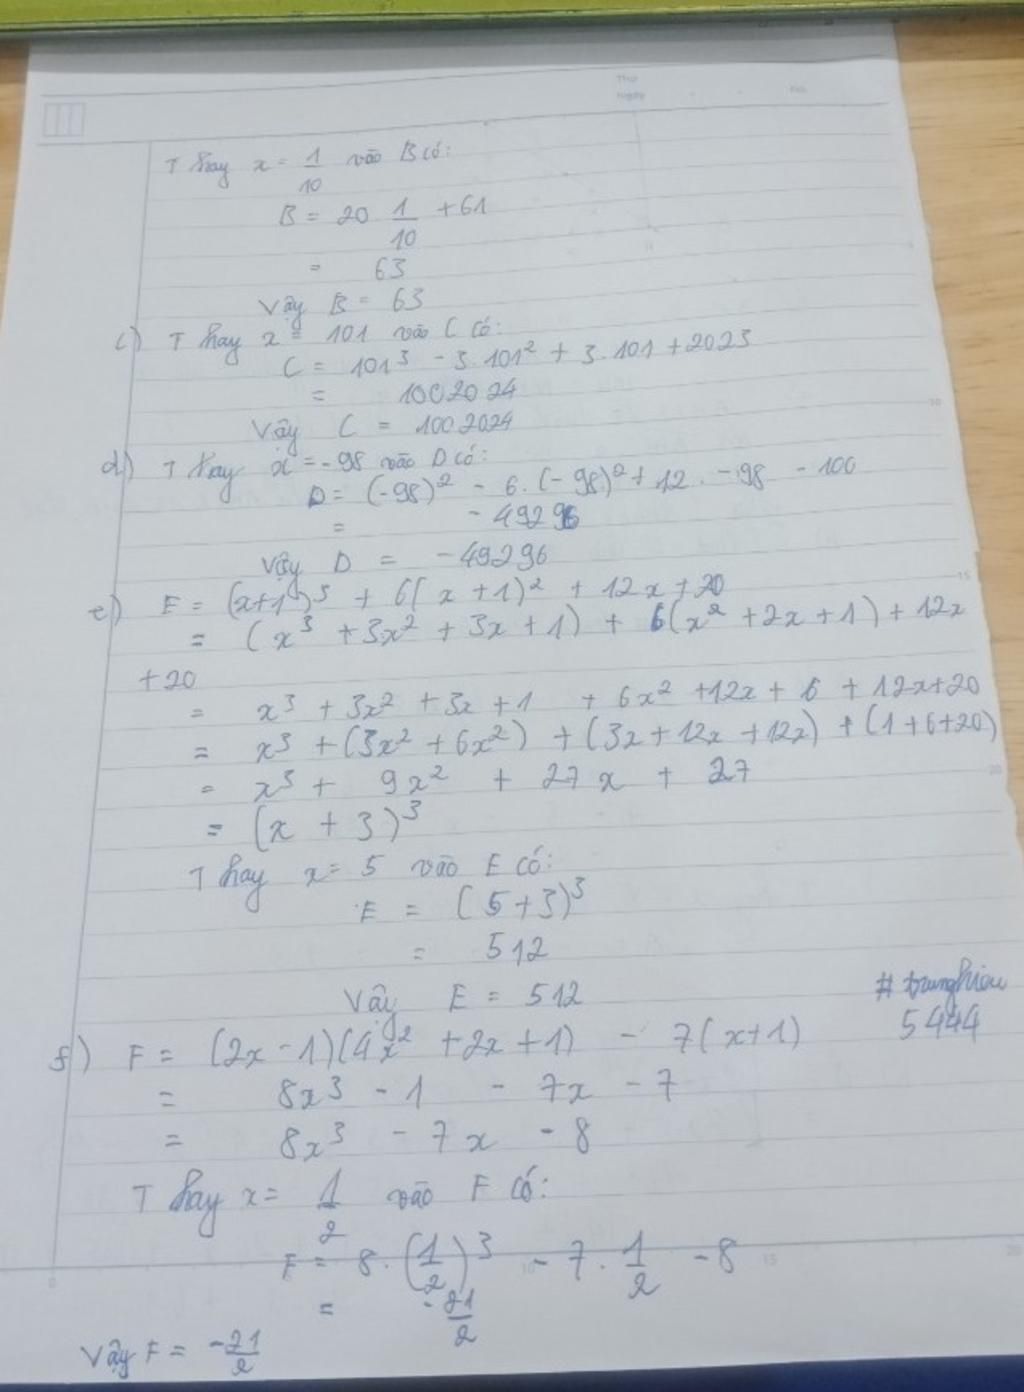 Thứ
Ngày No.
Thay x = 1/10 vào B có:
B = 20 1/10 + 61
= 63
Vậy B = 63
c) Thay x = 101 vào C có:
C = 101³ - 3.101² + 3.101 + 2023
= 1002024
Vậy C = 1002024
d) Thay x = -98 vào D có:
D = (-98)² - 6.(-98)² + 12. -98 - 100
= -49296
Vậy D = -49296
e) E = (x+1)³ + 6(x+1)² + 12x + 20
= (x³ + 3x² + 3x + 1) + 6(x² + 2x + 1) + 12x
+ 20
= x³ + 3x² + 3x + 1 + 6x² + 12x + 6 + 12x + 20
= x³ + (3x² + 6x²) + (3x + 12x + 12x) + (1 + 6 + 20)
= x³ + 9x² + 27x + 27
= (x + 3)³
Thay x = 5 vào E có:
E = (5+3)³
= 512
Vậy E = 512
# trunghieu
5444
f) F = (2x - 1)(4x² + 2x + 1) - 7(x+1)
= 8x³ - 1 - 7x - 7
= 8x³ - 7x - 8
Thay x = 1/2 vào F có:
F = 8.(1/2)³ - 7. 1/2 - 8
= -21/2
Vậy F = -21/2